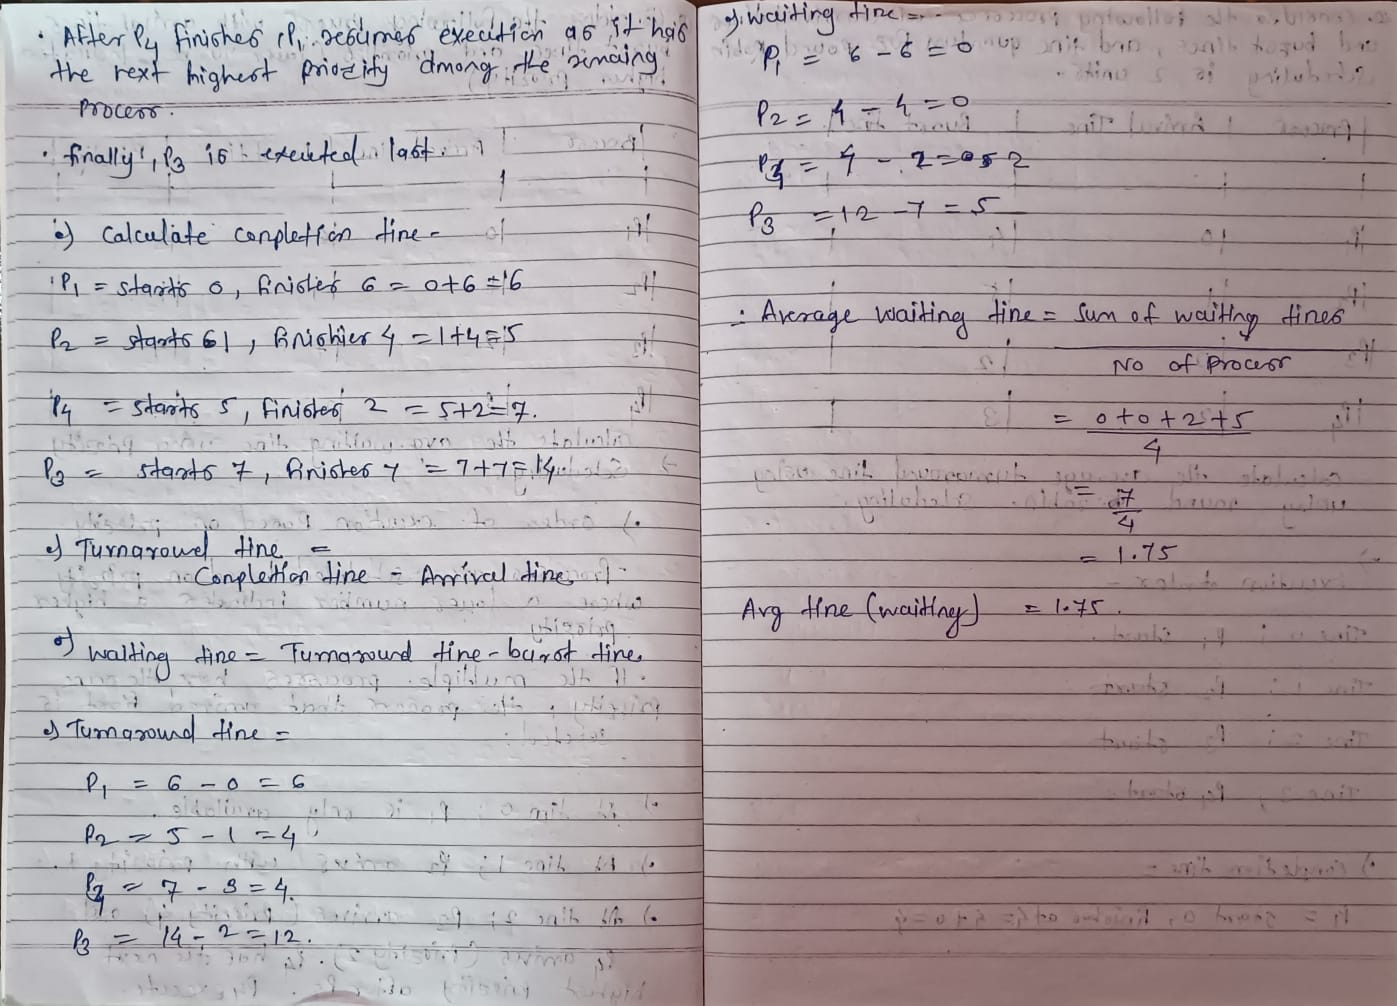 . After P4 finishes P1 resumes execution as it has
the next highest priority among the remaing
process.
. finally, P3 is executed last.
Calculate conpletion time -
P1 = starts 0, finishes 6 = 0+6 = 6
P2 = starts 1, finishies 4 = 1+4 = 5
P4 = starts 5, finishes 2 = 5+2 = 7.
P3 = starts 7, finishes 7 = 7+7 = 14
Turnaround time =
Completion time - Arrival time
Waiting time = Turnaround time - burst time
Turnaround time =
P1 = 6 - 0 = 6
P2 = 5 - 1 = 4
P4 = 7 - 3 = 4.
P3 = 14 - 2 = 12.
Waiting time =
P1 = 6 - 6 = 0
P2 = 4 - 4 = 0
P4 = 4 - 2 = 2
P3 = 12 - 7 = 5
Average waiting time = Sum of waiting times
No of process
= 0+0+2+5
4
= 7
4
= 1.75
Avg time (waiting) = 1.75.